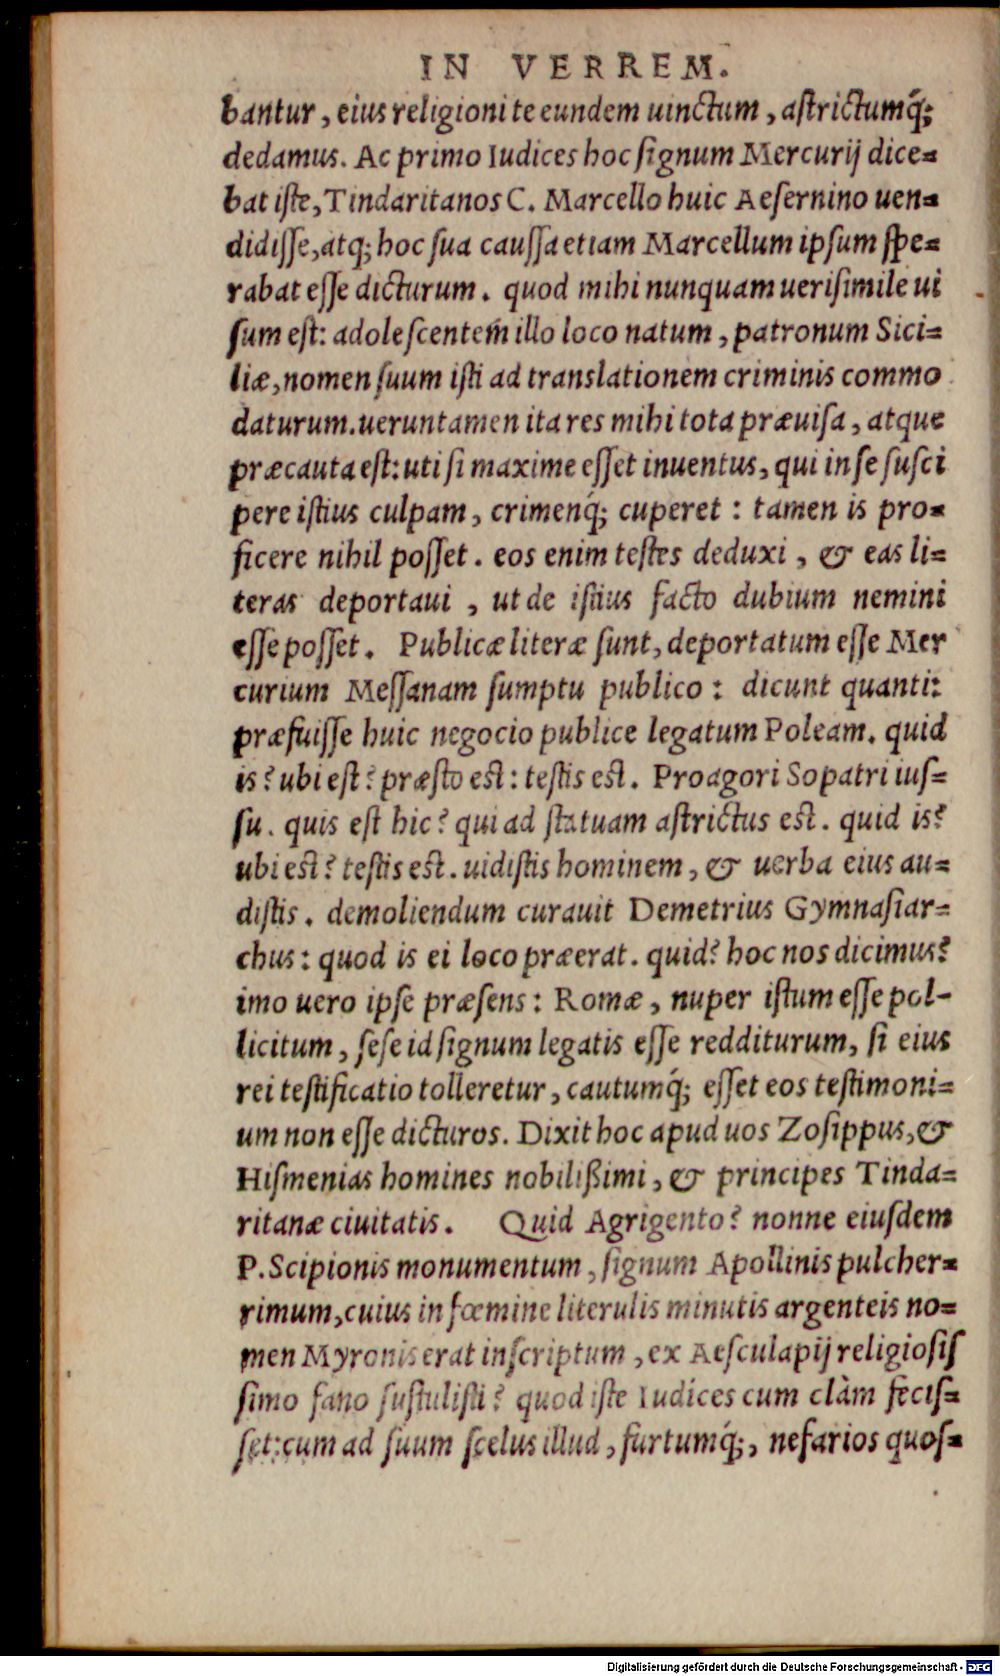 IN VERREM.
bantur, eius religioni te eundem uinctum, aſtrictumq́;
dedamus. Ac primo Iudices hoc ſignum Mercurij dice=
bat iſte, Tindaritanos C. Marcello huic Aeſernino uen=
didiſſe, atq; hoc ſua cauſſa etiam Marcellum ipſum ſpe=
rabat eſſe dicturum. quod mihi nunquam ueriſimile ui
ſum eſt: adoleſcentem illo loco natum, patronum Sici=
liæ, nomen ſuum iſti ad translationem criminis commo
daturum. ueruntamen ita res mihi tota præuiſa, atque
præcauta eſt: uti ſi maxime eſſet inuentus, qui in ſe ſuſci
pere iſtius culpam, crimenq́; cuperet : tamen is pro=
ficere nihil poſſet. eos enim teſtes deduxi, & eas li=
teras deportaui, ut de iſtius facto dubium nemini
eſſe poſſet. Publicæ literæ ſunt, deportatum eſſe Mer
curium Meſſanam ſumptu publico : dicunt quanti:
præfuiſſe huic negocio publice legatum Poleam. quid
is? ubi eſt? præſto eſt: teſtis eſt. Proagori Sopatri iuſ=
ſu. quis eſt hic? qui ad ſtatuam aſtrictus eſt. quid is?
ubi eſt? teſtis eſt. uidiſtis hominem, & uerba eius au=
diſtis. demoliendum curauit Demetrius Gymnaſiar=
chus: quod is ei loco præerat. quid? hoc nos dicimus?
imo uero ipſe præſens: Romæ, nuper iſtum eſſe pol-
licitum, ſeſe id ſignum legatis eſſe redditurum, ſi eius
rei teſtificatio tolleretur, cautumq́; eſſet eos teſtimoni=
um non eſſe dicturos. Dixit hoc apud uos Zoſippus, &
Hiſmenias homines nobilißimi, & principes Tinda=
ritanæ ciuitatis. Quid Agrigento? nonne eiuſdem
P. Scipionis monumentum, ſignum Apollinis pulcher=
rimum, cuius in fœmine literulis minutis argenteis no=
men Myronis erat inſcriptum, ex Aeſculapij religioſiſ
ſimo fano ſuſtuliſti? quod iſte Iudices cum clàm feciſ=
ſet: cum ad ſuum ſcelus illud, furtumq́;, nefarios quoſ=
Digitalisierung gefördert durch die Deutsche Forschungsgemeinschaft - DFG